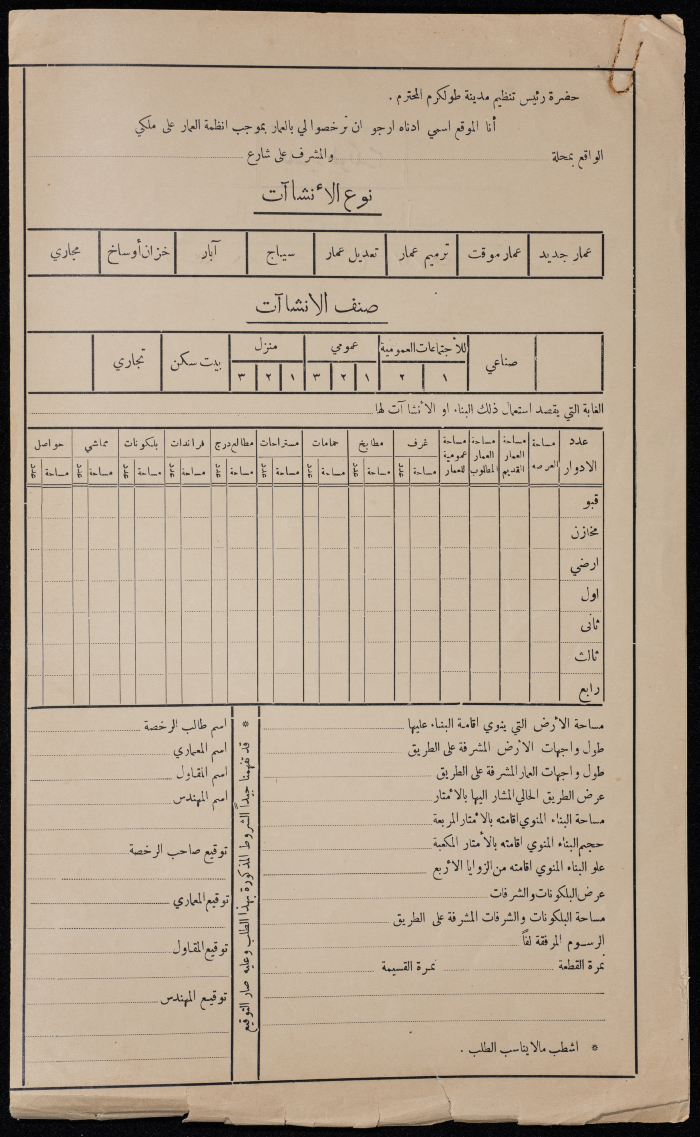 حضرة رئيس تنظيم مدينة طولكرم المحترم .
أنا الموقع اسمي ادناه ارجو ان ترخصوا لي بالعمار بموجب انظمة العمار على ملكي
الواقع بمحلة والمشرف على شارع
نوع الأنشاآت
عمار جديد عمار موقت ترميم عمار تعديل عمار سياج آبار خزان أوساخ مجاري
صنف الانشاآت
صناعي للأجتماعات العمومية عمومي منزل بيت سكن تجاري
١ ٢ ١ ٢ ٣ ١ ٢ ٣
الغاية التي يقصد استعمال ذلك البناء او الأنشاآت لها
عدد الادوار مساحة العرصه مساحة العمار القديم مساحة العمار المطلوب مساحة عمومية للعمار غرف مطابخ حمامات مستراحات مطالع درج فراندات بلكونات مماشي حواصل
مساحة عدد مساحة عدد مساحة عدد مساحة عدد مساحة عدد مساحة عدد مساحة عدد مساحة عدد مساحة عدد
قبو
مخازن
ارضي
اول
ثاني
ثالث
رابع
مساحة الأرض التي ينوي اقامة البناء عليها
طول واجهات الأرض المشرفة على الطريق
طول واجهات العمار المشرفة على الطريق
عرض الطريق الحالي المشار اليها بالأمتار
مساحة البناء المنوي اقامته بالأمتار المربعة
حجم البناء المنوي اقامته بالأمتار المكعبة
علو البناء المنوي اقامته من الزوايا الأربع
عرض البلكونات والشرفات
مساحة البلكونات والشرفات المشرفة على الطريق
الرسوم المرفقة لفاً
نمرة القطعة نمرة القسيمة
* اشطب ما لا يناسب الطلب .
* قد تفهمنا جيداً الشروط المذكورة بهذا الطلب وعليه صار التوقيع
اسم طالب الرخصة
اسم المعماري
اسم المقاول
اسم المهندس
توقيع صاحب الرخصة
توقيع المعماري
توقيع المقاول
توقيع المهندس